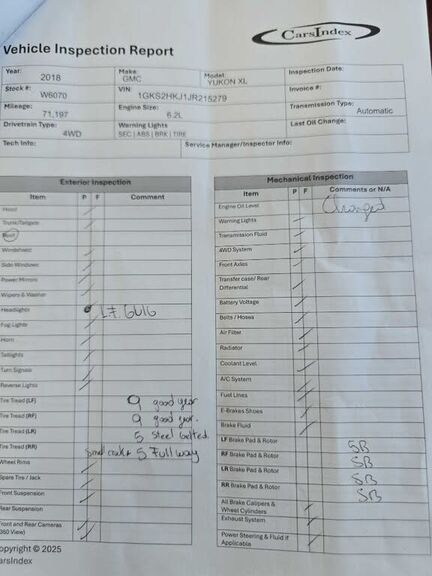 CarsIndex
Vehicle Inspection Report
Year: 2018 Make: GMC Model: YUKON XL Inspection Date:
Stock #: W6070 VIN: 1GKS2HKJ1JR215279 Invoice #:
Mileage: 71,197 Engine Size: 6.2L Transmission Type: Automatic
Drivetrain Type: 4WD Warning Lights SEC | ABS | BRK | TIRE Last Oil Change:
Tech Info: Service Manager/Inspector Info:
Exterior Inspection
Item P F Comment
Hood
Trunk/Tailgate
Roof
Windshield
Side Windows
Power Mirrors
Wipers & Washer
Headlights
Fog Lights
Horn
Taillights
Turn Signals
Reverse Lights
Tire Tread (LF) 9 good year
Tire Tread (RF) 9 good year.
Tire Tread (LR) 5 Steel belted
Tire Tread (RR) 5 Fullway
Wheel Rims
Spare Tire / Jack
Front Suspension
Rear Suspension
Front and Rear Cameras
(360 View)
Copyright © 2025
CarsIndex
Mechanical Inspection
Item P F Comments or N/A
Engine Oil Level Changed
Warning Lights
Transmission Fluid
4WD System
Front Axles
Transfer case/ Rear
Differential
Battery Voltage
Belts / Hoses
Air Filter
Radiator
Coolant Level
A/C System
Fuel Lines
E-Brakes Shoes
Brake Fluid
LF Brake Pad & Rotor 5B
RF Brake Pad & Rotor 5B
LR Brake Pad & Rotor 5B
RR Brake Pad & Rotor 5B
All Brake Calipers &
Wheel Cylinders
Exhaust System
Power Steering & Fluid if
Applicable